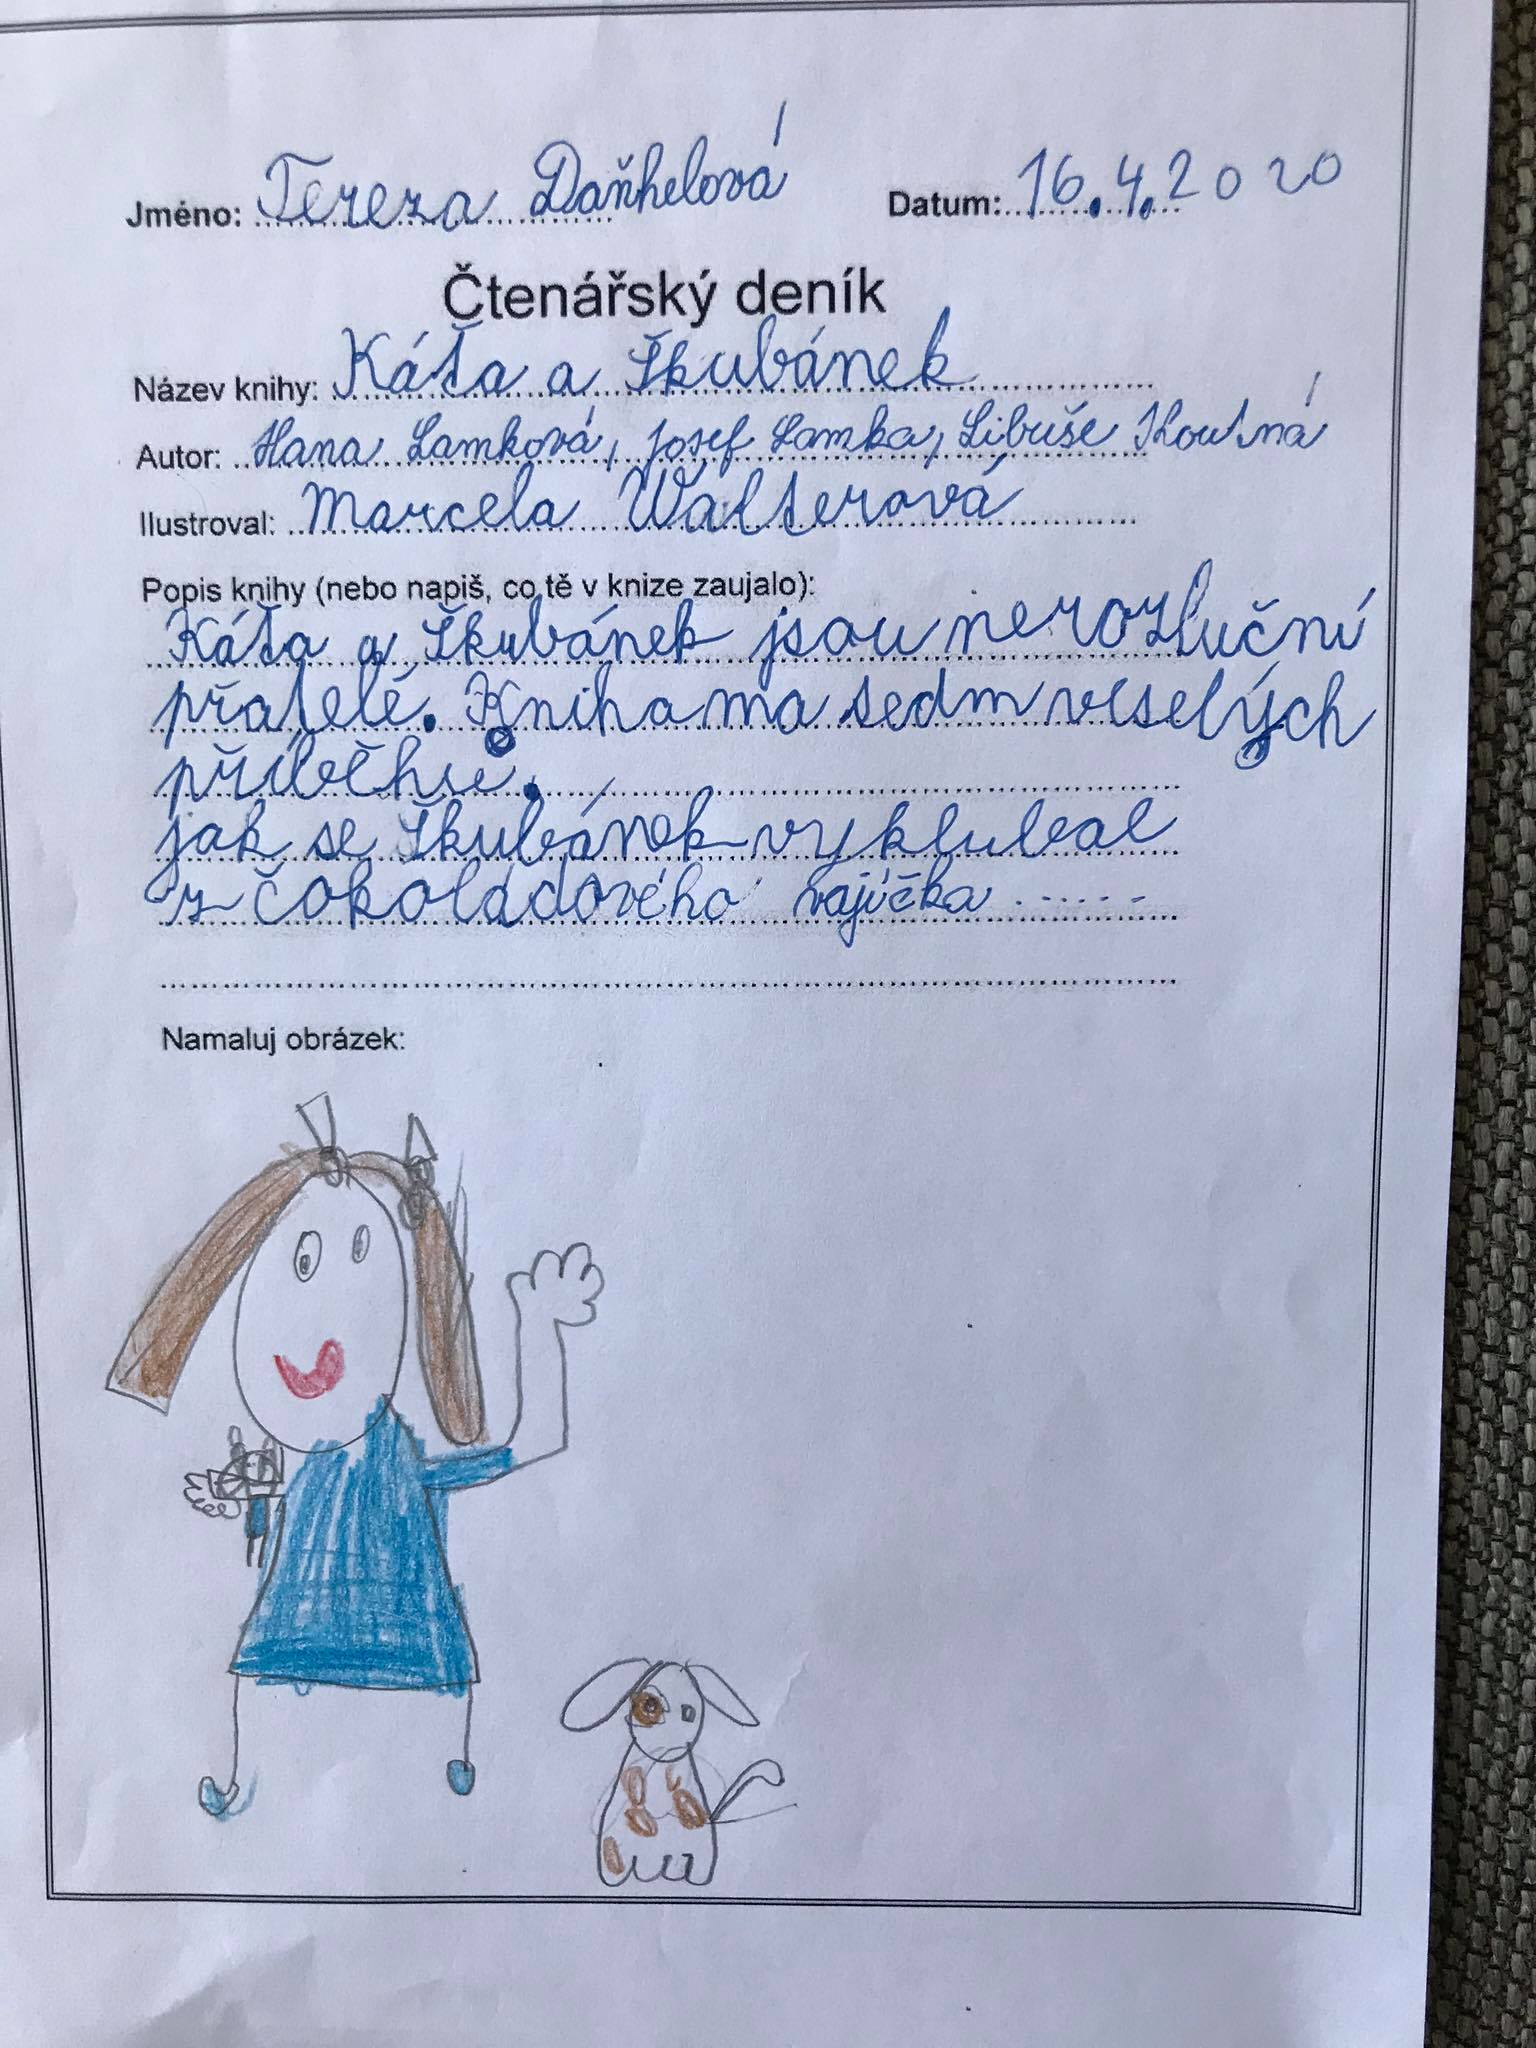 Jméno: Tereza Daňhelová Datum: 16.4.2020
Čtenářský deník
Název knihy: Káťa a Škubánek
Autor: Hana Lamková, Josef Lamka, Libuše Koutná
Ilustroval: Marcela Walterová
Popis knihy (nebo napiš, co tě v knize zaujalo):
Káťa a Škubánek jsou nerozluční
přatelé. Kniha ma sedm veselých
příběhu.
jak se Škubánek vyklubal
z čokoládového vajíčka ......
Namaluj obrázek: